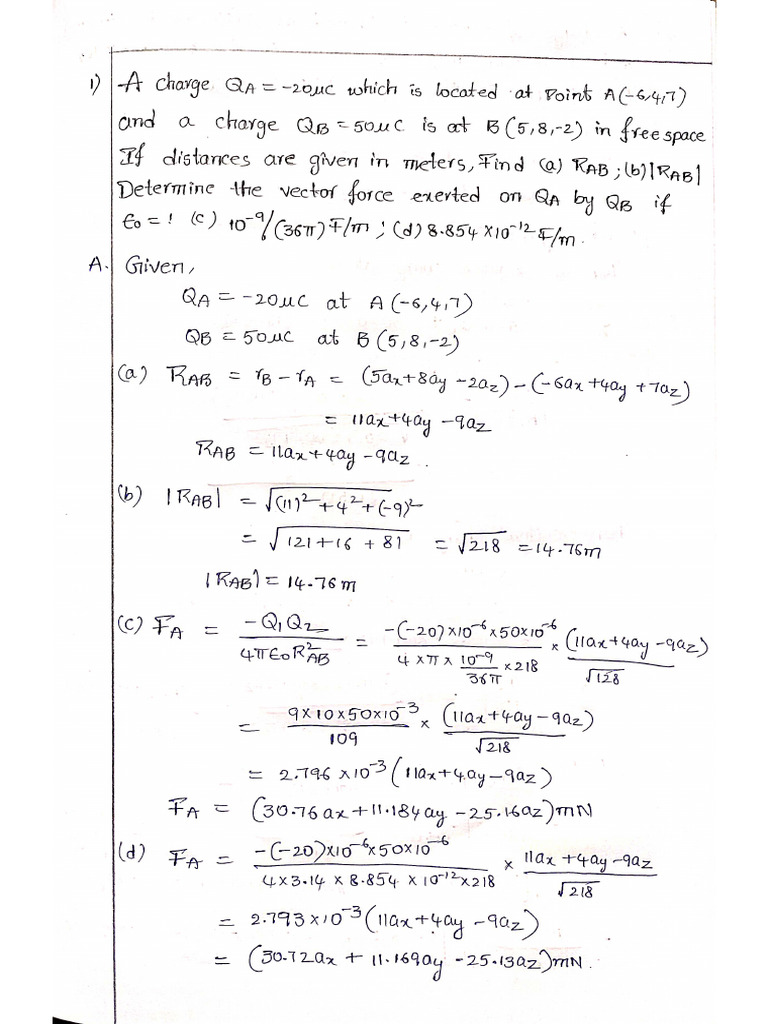 1) A charge QA = -20μC which is located at Point A(-6,4,7)
and a charge QB = 50μC is at B(5,8,-2) in free space
If distances are given in meters, Find (a) RAB ; (b) |RAB|
Determine the vector force exerted on QA by QB if
ϵ0 = ! (c) 10⁻⁹/(36π) F/m ; (d) 8.854 ×10⁻¹² F/m.
A. Given,
QA = -20μC at A(-6,4,7)
QB = 50μC at B(5,8,-2)
(a) RAB = rB - rA = (5ax+8ay -2az) - (-6ax +4ay +7az)
= 11ax+4ay -9az
RAB = 11ax+4ay -9az.
(b) |RAB| = √(11)² + 4² + (-9)²
= √121+16 + 81 = √218 = 14.76m
|RAB| = 14.76m
(c) FA = -Q1Q2/4πϵ0R²AB = -(-20)×10⁻⁶×50×10⁻⁶/4×π×10⁻⁹/36π×218 × (11ax+4ay -9az)/√128
= 9×10×50×10⁻³/109 × (11ax+4ay-9az)/√218
= 2.796 ×10⁻³ (11ax+4ay-9az)
FA = (30.76ax+11.184ay -25.16az)mN
(d) FA = -(-20)×10⁻⁶×50×10⁻⁶/4×3.14×8.854×10⁻¹²×218 × 11ax+4ay-9az/√218
= 2.793×10⁻³(11ax+4ay -9az)
= (30.72ax + 11.169ay -25.13az)mN.